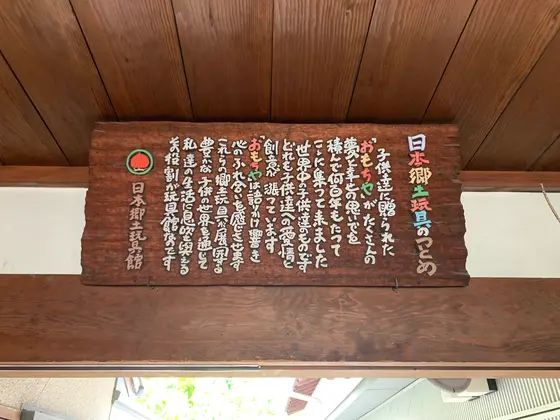 日本郷土玩具のつとめ
子供達に贈られた
"おもちゃ"がたくさんの
夢と幸せの想いでを
積んで何百年もたって
ここに集って来ました
世界中の子供達のものです
どれも子供達への愛情と
創意が漲っています
"おもちゃ"は語りかけ響き
心のふれ合いを感じさせます
これらの郷土玩具が展開する
豊かな子供の世界を通じて
私達の生活に息吹を与える
その役割が玩具館なのです
日本郷土玩具館